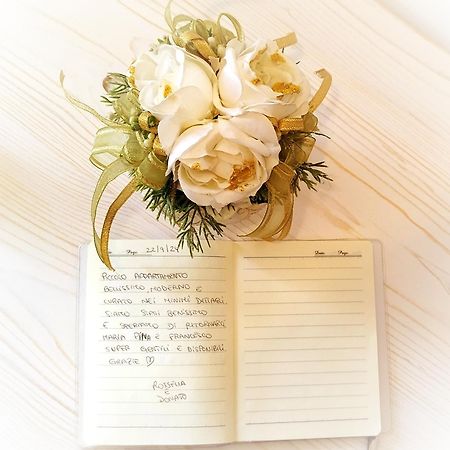 Page 22/9/24
PICCOLO APPARTAMENTO
BELLISSIMO, MODERNO E
CURATO NEI MINIMI DETTAGLI.
SIAMO STATI BENISSIMO
E SPERIAMO DI RITORNARCI.
MARIA PINA E FRANCESCO
SUPER GENTILI E DISPONIBILI.
GRAZIE ♡
ROSSELLA
E
DONATO
Date Page